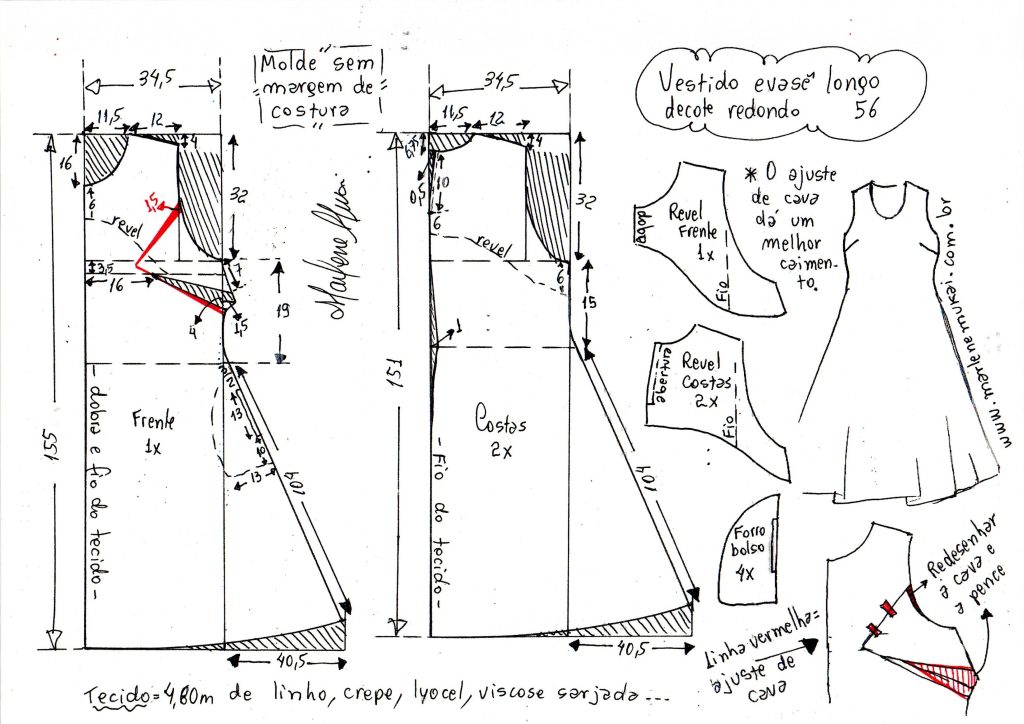 Molde sem
margem de
costura
Vestido evasê longo
decote redondo 56
34,5
11,5
12
4
16
6
1,5
revel
32
3,5
16
7
4
1,5
19
2
13
10
13
104
155
Frente
1x
- dobra e fio do tecido -
40,5
Marlene Mukai
34,5
11,5
12
4
0,5
10
6
revel
6
32
15
1
151
Costas
2x
- Fio do tecido -
104
40,5
dobra
Revel
Frente
1x
Fio
* O ajuste
de cava
dá um
melhor
caimen-
to.
abertura
Revel
Costas
2x
Fio
www.marlenemukai.com.br
Forro
bolso
4x
Linha vermelha=
ajuste de
cava
Redesenhar
a cava e
a pence
Tecido=4,80m de linho, crepe, lyocel, viscose sarjada...